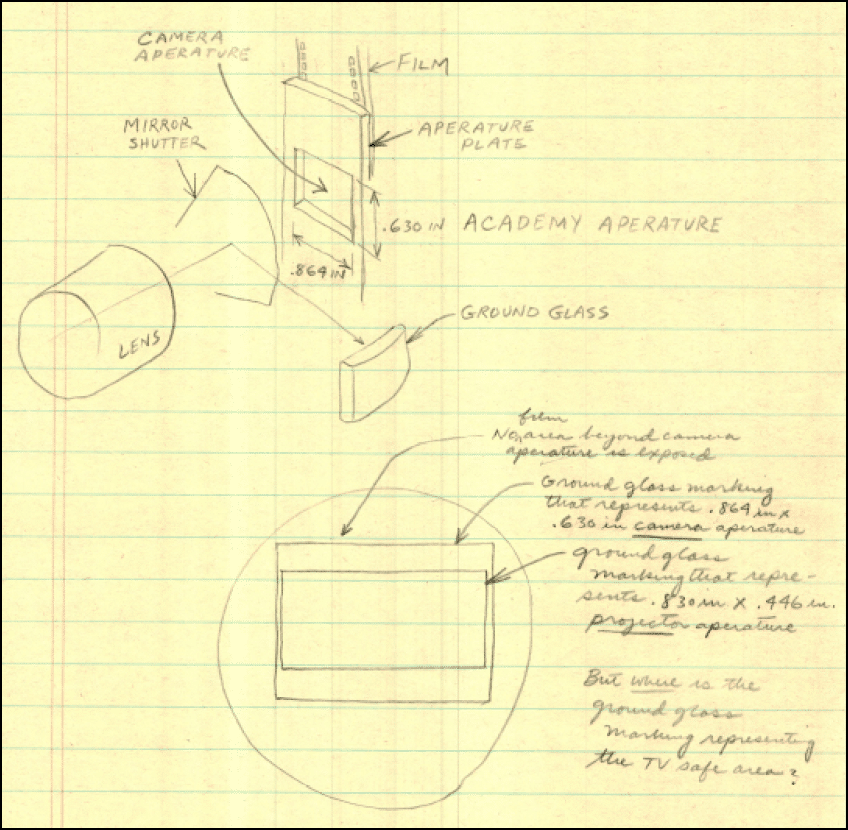 CAMERA
APERATURE
FILM
MIRROR
SHUTTER
APERATURE
PLATE
.630 IN ACADEMY APERATURE
.864 IN
LENS
GROUND GLASS
film
No area beyond camera
aperature is exposed
Ground glass marking
that represents .864 in x
.630 in camera aperature
ground glass
marking that repre-
sents .830 in X .446 in.
projector aperature
But where is the
ground glass
marking representing
the TV safe area?